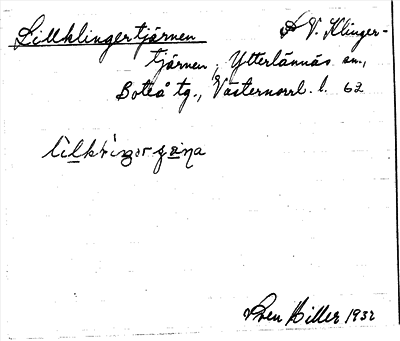 Lillklingertjärnen A V. Klinger-
tjärnen, Ytterlännäs sn.,
Boteå tg., Västernorrl. l. 62
Sven Hiller 1932